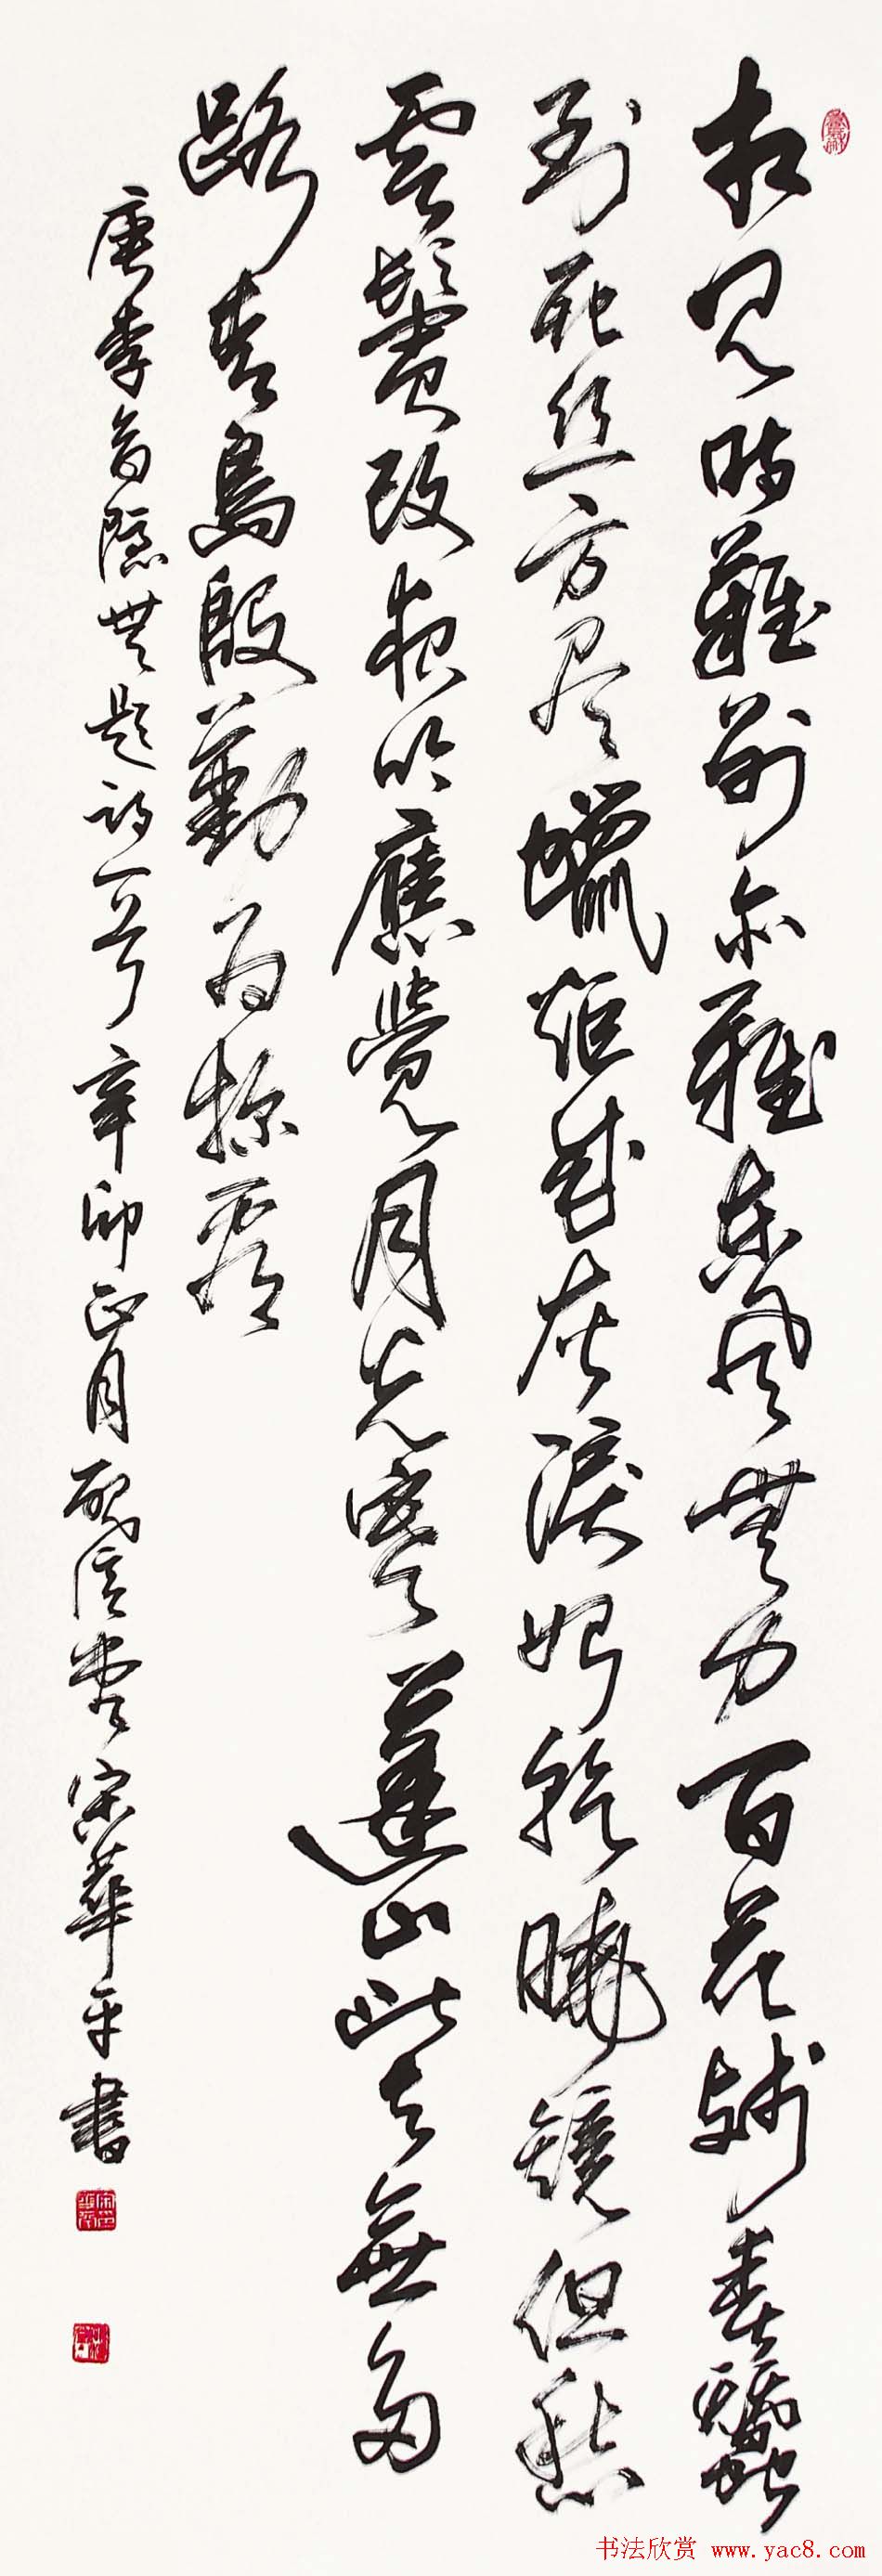 相見時難別亦難東風無力百花殘春蠶
到死丝方尽蠟炬成灰淚始乾曉鏡但愁
雲鬢改夜吟應覺月光寒蓬山此去無多
路青鳥殷勤为探看
唐李商隱無題詩一首辛卯正月信堂宋華平書
书法欣赏 www.yac8.com